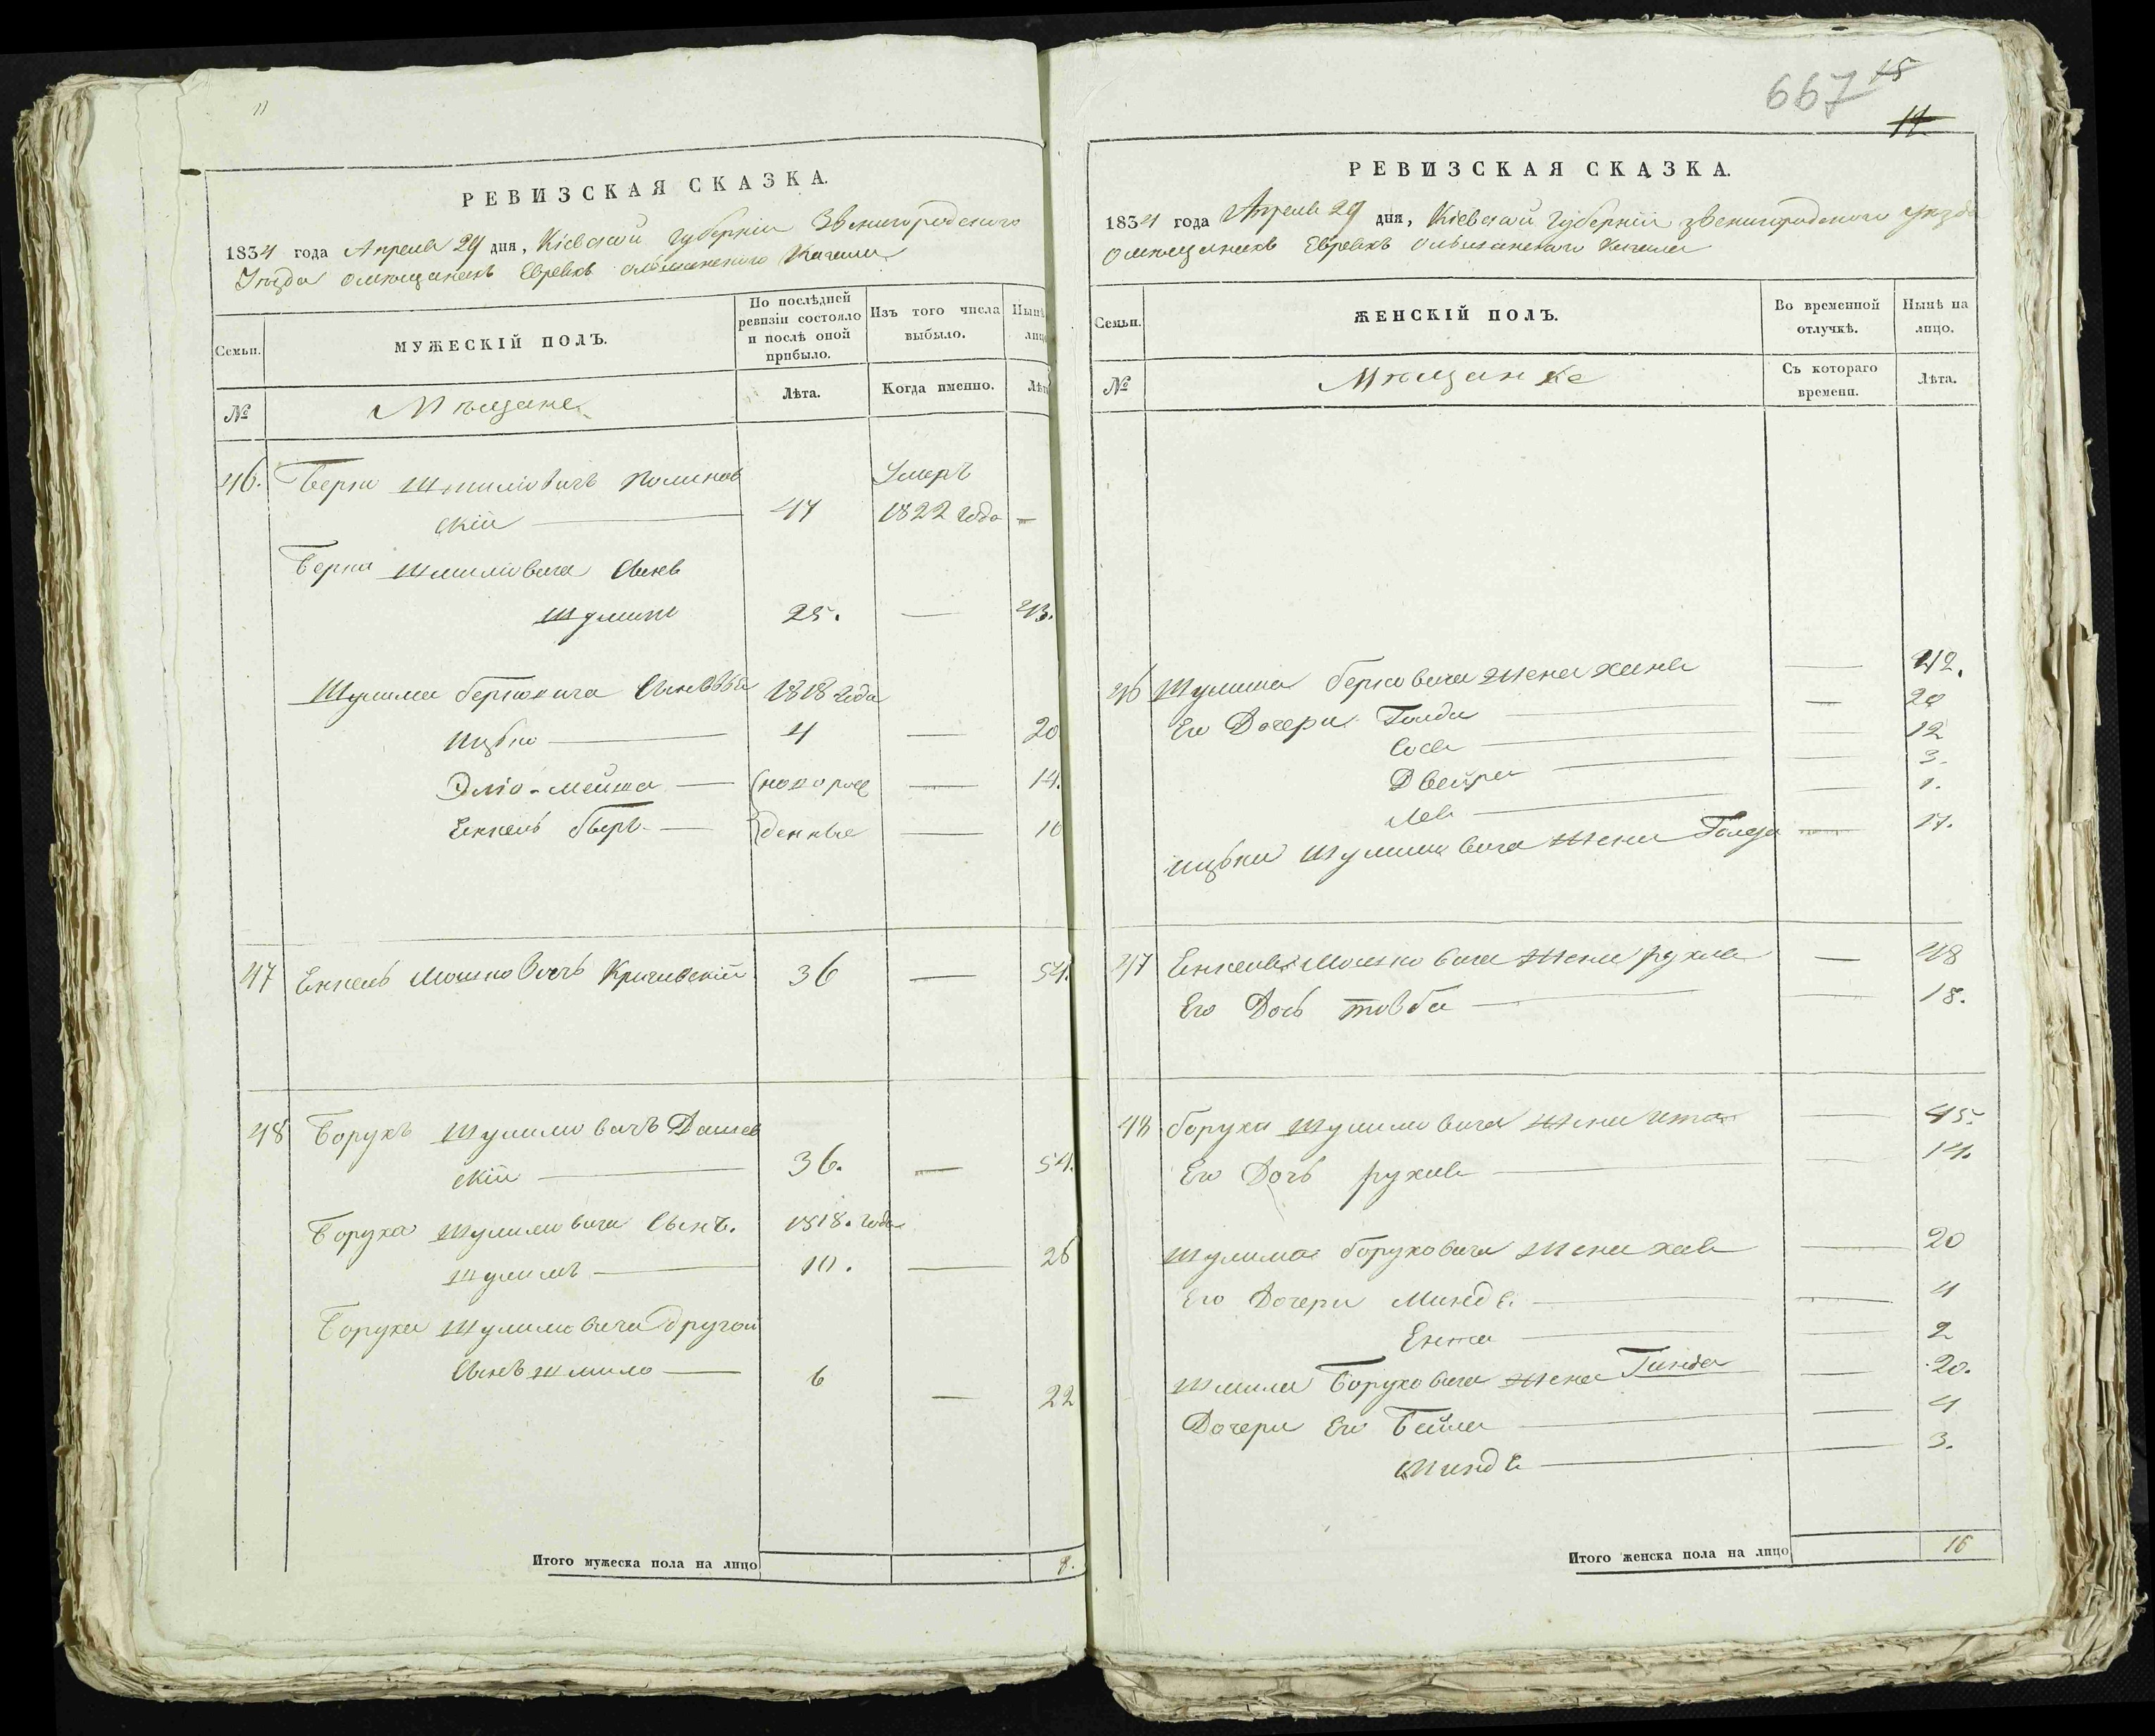 11
РЕВИЗСКАЯ СКАЗКА.
1834 года Апреля 29 дня, Кіевской Губерніи Звенигородского
Уезда о мещанехъ Евреяхъ Ольшанского Кагала
Семьи.
МУЖЕСКІЙ ПОЛЪ.
По послѣдней ревизіи состояло и послѣ оной прибыло.
Изъ того числа выбыло.
Нынѣ
лицо
№
Мѣщане
Лѣта.
Когда именно.
Лѣта
46. Берко Шмиліовичъ Полинов
Умеръ
скій 47 1822 года —
Берка Шмиліовича Сынъ
Шулимъ 25. — 43.
Шулима Берковича Сыновья 1818 года
Ицко 4 — 20
Эліо-Мейша (новорож — 14.
Енкель Беръ (денные — 10
47 Енкель Мошковичъ Кричевскій 36 — 54.
48 Борухъ Шулимовичъ Дашев
скій 36. — 54.
Боруха Шулимовича Сынъ. 1818. года
Шулимъ 10. — 28
Боруха Шулимовича другой
Сынъ Шмило 6 — 22
Итого мужеска пола на лицо 8.
667 15
14
РЕВИЗСКАЯ СКАЗКА.
1834 года Апреля 29 дня, Кіевской Губерніи Звенигородского уезда
о мещанехъ Евреяхъ Ольшанского Кагала
Семьи.
ЖЕНСКІЙ ПОЛЪ.
Во временной отлучкѣ.
Нынѣ на лицо.
№
Мѣщанке
Съ котораго времени.
Лѣта.
46 Шулима Берковича жена Хана — 42.
Его Дочери Голда — 20
Сося — 12
Двейра — 3.
Лея — 1.
Ицки Шулимовича жена Голда — 17.
47 Енкеля Мошковича жена Рухля — 48
Его Дочь Товба — 18.
48 Боруха Шулимовича жена Ита — 45.
Его Дочь Рухля — 14.
Шулима Боруховича жена Хая — 20
Его Дочери Миндя — 4
Ента — 2
Шмила Боруховича жена Гинда — 20.
Дочери Его Бейла — 4
Миндя — 3.
Итого женска пола на лицо 16